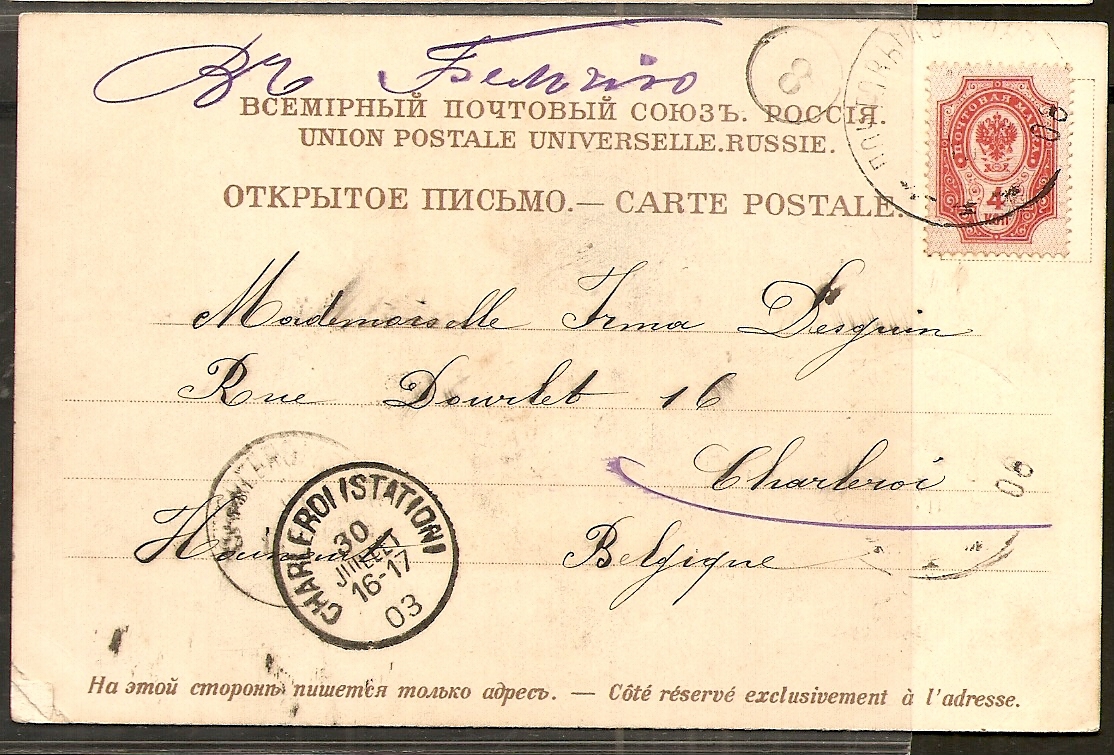 Въ Бельгію
8
ВСЕМІРНЫЙ ПОЧТОВЫЙ СОЮЗЪ. РОССІЯ.
UNION POSTALE UNIVERSELLE.RUSSIE.
ПОЧТОВАЯ МАРКА
4
КОП
ОТКРЫТОЕ ПИСЬМО.— CARTE POSTALE.
Mademoiselle Irma Desguin
Rue Dourlet 16
Charleroi
Belgique
CHARLEROI (STATION)
30
JUILLET
16-17
03
На этой сторонѣ пишется только адресъ. — Côté réservé exclusivement à l'adresse.